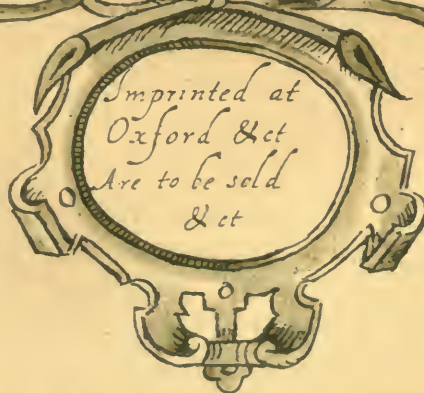 Imprinted at
Oxford &ct
Are to be sold
& ct